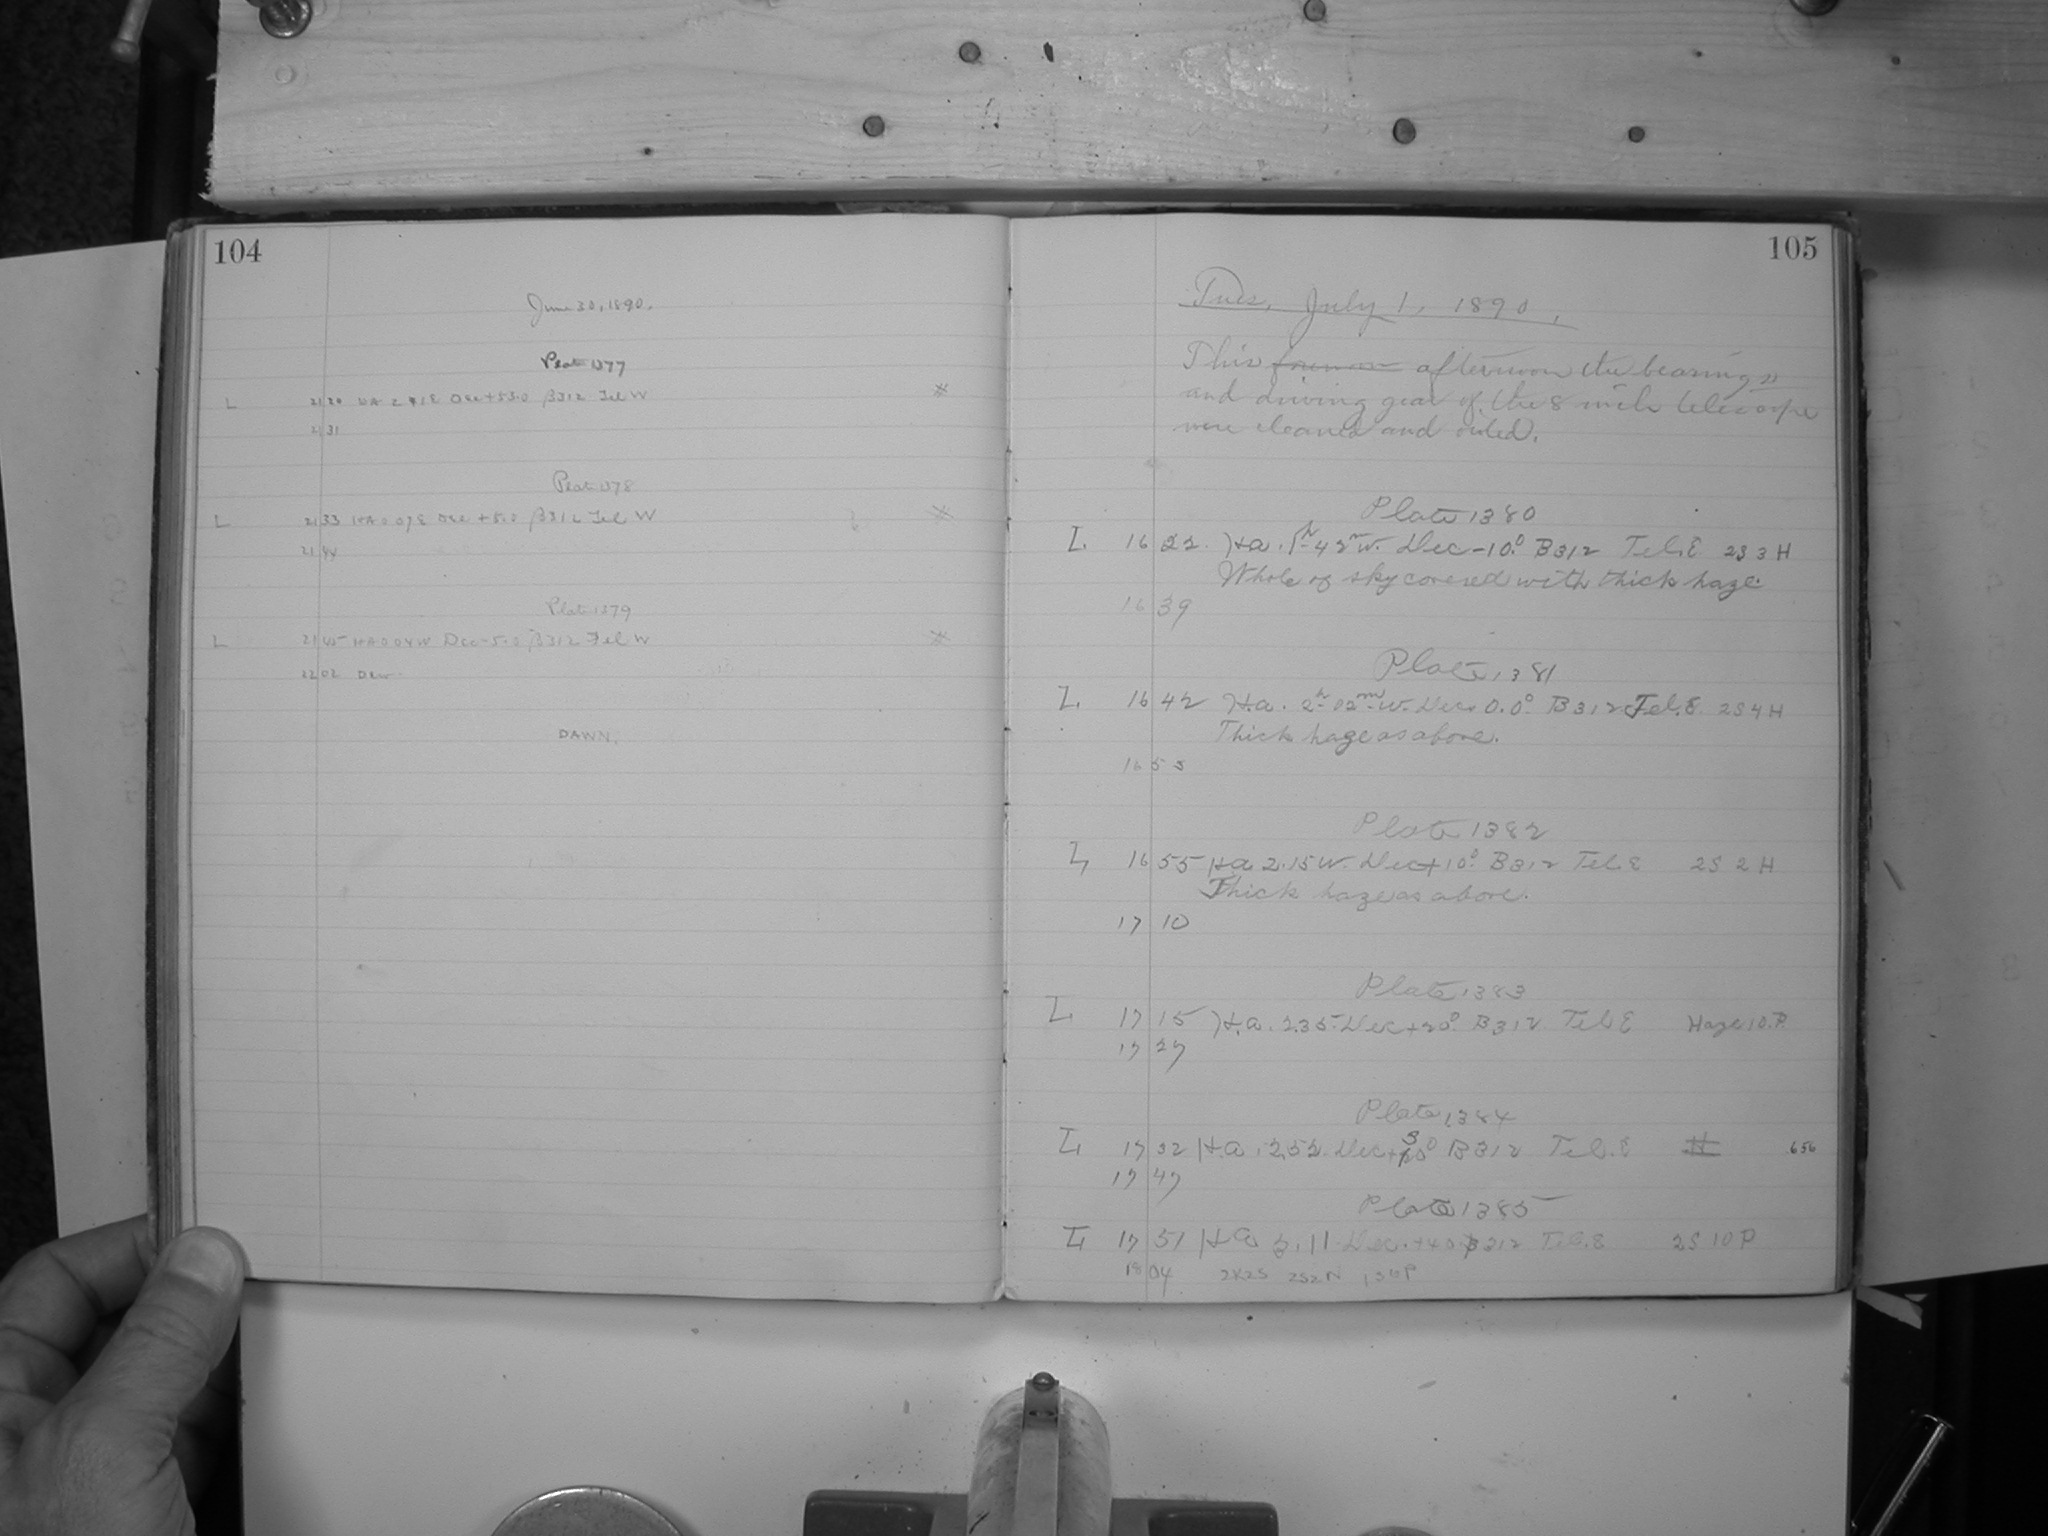 104
June 30, 1890.
Plate 1377
L 21 20 HA 2 41 E Dec +53.0 B312 Tel W
21 31
Plate 1378
L 21 33 HA 0 07 E Dec +5.0 B312 Tel W
21 44
Plate 1379
L 21 45 HA 0 04 W Dec -5.0 B312 Tel W
22 02 Dew
DAWN.
105
Tues, July 1, 1890.
This forenoon afternoon the bearings
and driving gear of the 8 inch telescope
were cleaned and oiled.
Plate 1380
L 16 22 H.a. 1h-42m W. Dec -10.° B312 Tel. E 2S 3 H
Whole of sky covered with thick haze.
16 39
Plate 1381
L 16 42 H.a. 2h-02m W. Dec 0.0° B312 Tel. E 2S 4 H
Thick haze as above.
16 55
Plate 1382
L 16 55 H.a 2.15 W. Dec +10° B312 Tel. E 2S 2 H
Thick haze as above.
17 10
Plate 1383
L 17 15 H.a. 2.35. Dec +20° B312 Tel. E Haze 10. P.
17 27
Plate 1384
L 17 32 H.a. 2.52. Dec +30° B312 Tel. E H 656
17 47
Plate 1385
L 17 51 H.a 3.11 Dec. +40 B312 Tel. E 2S 10 P
18 04 2K2S 2S2N